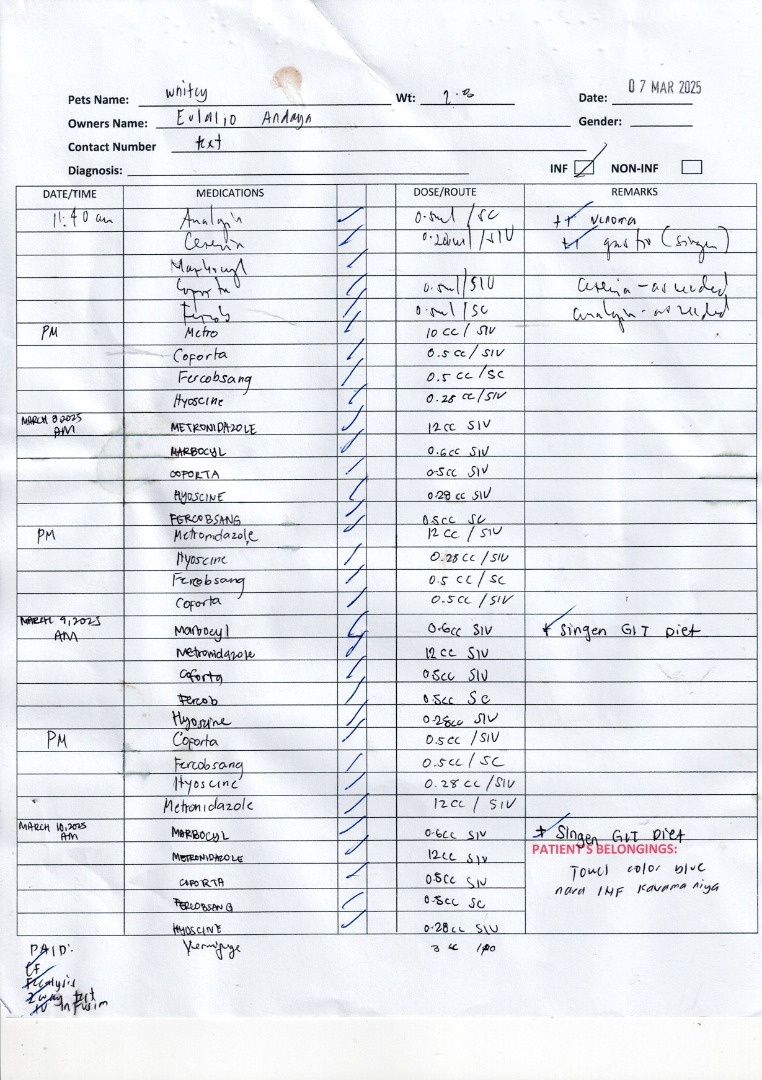 07 MAR 2025
Pets Name: whitey Wt: Date:
Owners Name: Eulalio Andaya Gender:
Contact Number text
Diagnosis: INF NON-INF
DATE/TIME MEDICATIONS DOSE/ROUTE REMARKS
11:40 am Analgin 0.5ml / SC ++ venoma
Cerenia 0.28ml / SIV ++ gastro (singen)
Marbocyl
Coporta 0.5ml / SIV cerenia - as needed
Fercob 0.5ml / SC analgin - as needed
PM Metro 10 cc / SIV
Coporta 0.5 cc / SIV
Fercobsang 0.5 cc / SC
Hyoscine 0.28 cc / SIV
MARCH 8, 2025
AM METRONIDAZOLE 12cc SIV
MARBOCYL 0.6cc SIV
COFORTA 0.5cc SIV
HYOSCINE 0.28 cc SIV
FERCOBSANG 0.5cc SC
PM Metronidazole 12 cc / SIV
Hyoscine 0.28 cc / SIV
Fercobsang 0.5 cc / SC
Coporta 0.5cc / SIV
MARCH 9, 2025
AM Marbocyl 0.6cc SIV + Singen GIT Diet
Metronidazole 12 cc SIV
Coforta 0.5cc SIV
Fercob 0.5cc SC
Hyoscine 0.28cc SIV
PM Coporta 0.5cc / SIV
Fercobsang 0.5cc / SC
Hyoscine 0.28 cc / SIV
Metronidazole 12cc / SIV
MARCH 10, 2025
AM MARBOCYL 0.6cc SIV + Singen GIT Diet
PATIENT'S BELONGINGS:
METRONIDAZOLE 12cc SIV Towel color blue
COPORTA 0.5cc SIV nara INF
FERCOBSANG 0.5cc SC
HYOSCINE 0.28cc SIV
3 cc
PAID:
CF
Fecalysis
2 way test
IV Infusion